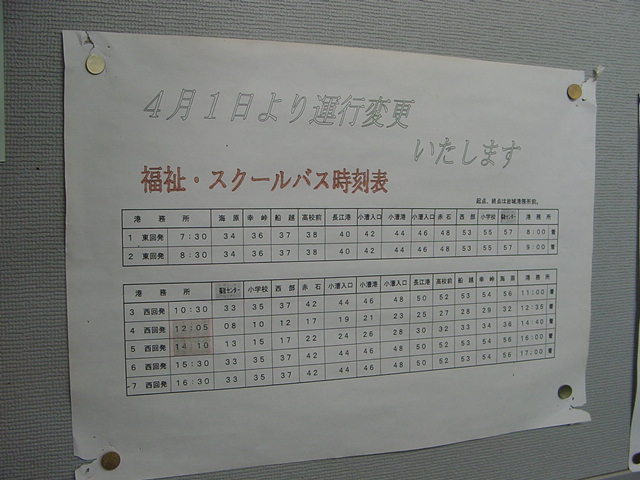 4月1日より運行変更
いたします
福祉・スクールバス時刻表
起点、終点は岩城港務所前。
港務所 海原 幸崎 船越 高校前 長江港 小漕入口 小漕港 小漕入口 赤石 西部 小学校 福祉センター 港務所
1 東回発 7:30 34 36 37 38 40 42 44 46 48 53 55 57 8:00 着
2 東回発 8:30 34 36 37 38 40 42 44 46 48 53 55 57 9:00 着
港務所 福祉センター 小学校 西部 赤石 小漕入口 小漕港 小漕入口 長江港 高校前 船越 幸崎 海原 港務所
3 西回発 10:30 33 35 37 42 44 46 48 50 52 53 54 56 11:00 着
4 西回発 12:05 08 10 12 17 19 21 23 25 27 28 29 32 12:35 着
5 西回発 14:10 13 15 17 22 24 26 28 30 32 33 34 36 14:40 着
6 西回発 15:30 33 35 37 42 44 46 48 50 52 53 54 56 16:00 着
7 西回発 16:30 33 35 37 42 44 46 48 50 52 53 54 56 17:00 着